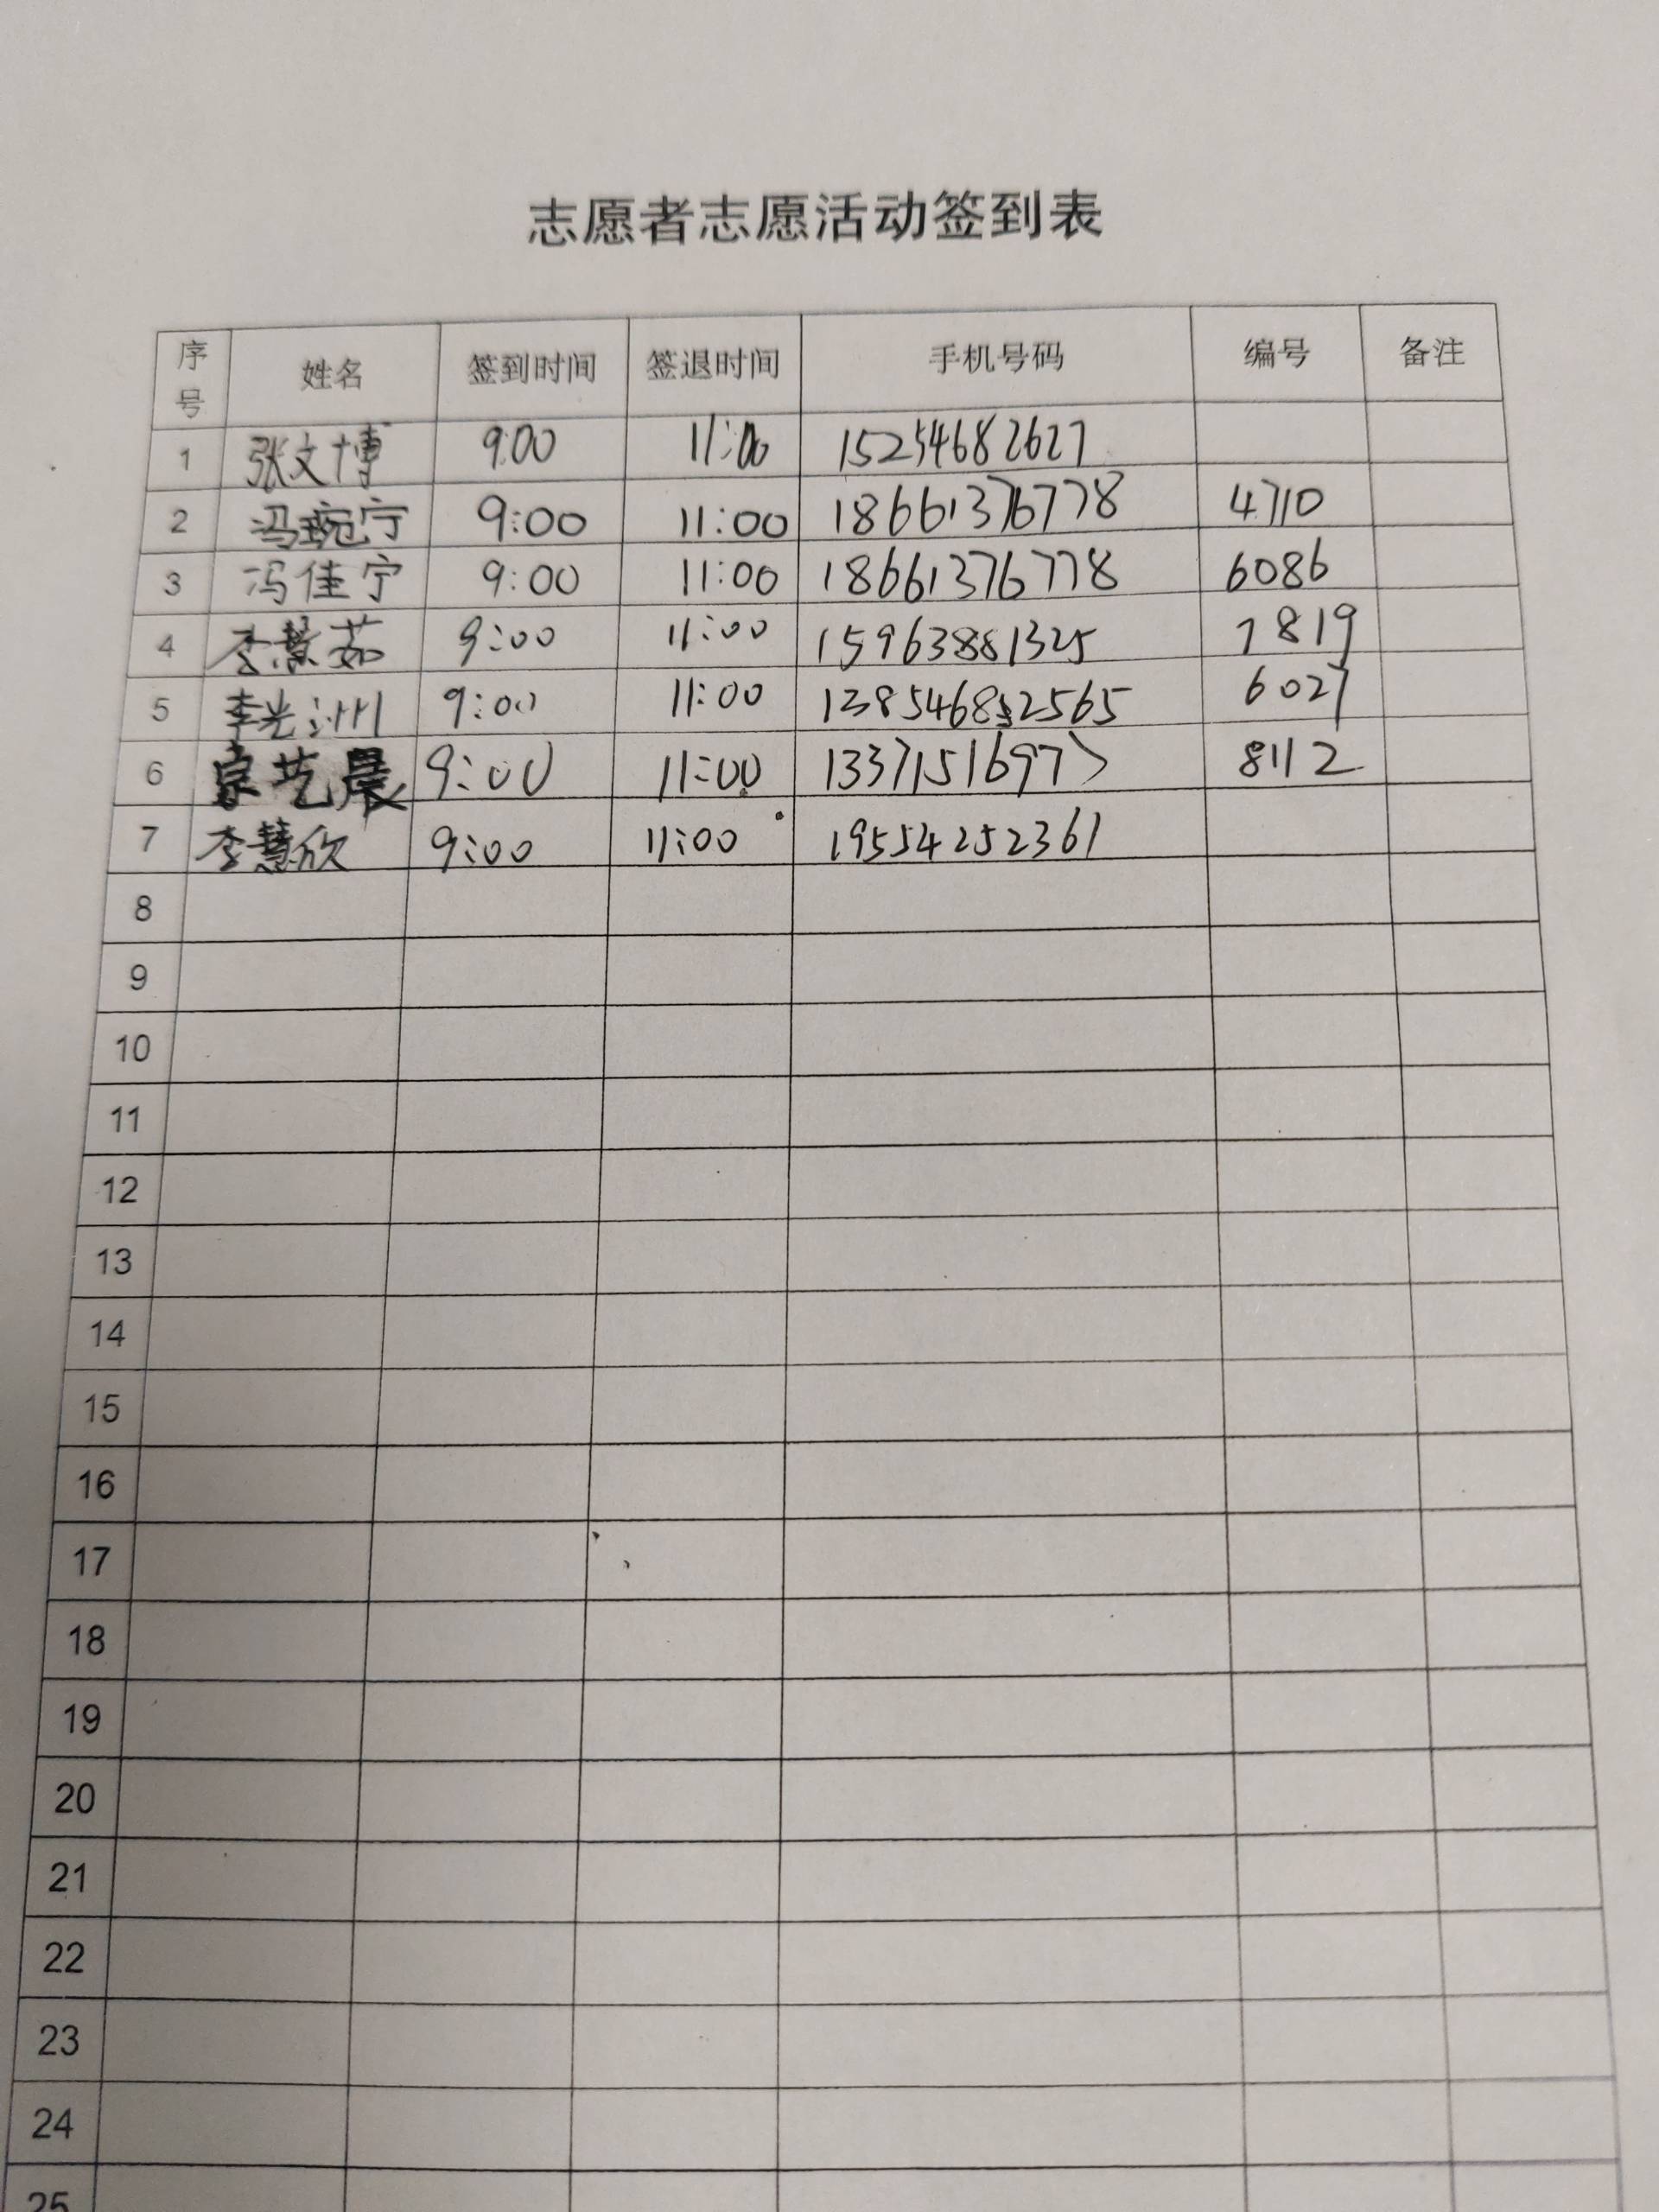 志愿者志愿活动签到表
序号 姓名 签到时间 签退时间 手机号码 编号 备注
1 张文博 9:00 11:00 15254682627
2 冯琬宁 9:00 11:00 18661376778 4710
3 冯佳宁 9:00 11:00 18661376778 6086
4 李慧茹 9:00 11:00 15963881325 7819
5 李光洲 9:00 11:00 6027
6 艺晨 9:00 11:00 13371516977 8112
7 李慧欣 9:00 11:00 19554252361
8
9
10
11
12
13
14
15
16
17
18
19
20
21
22
23
24
25